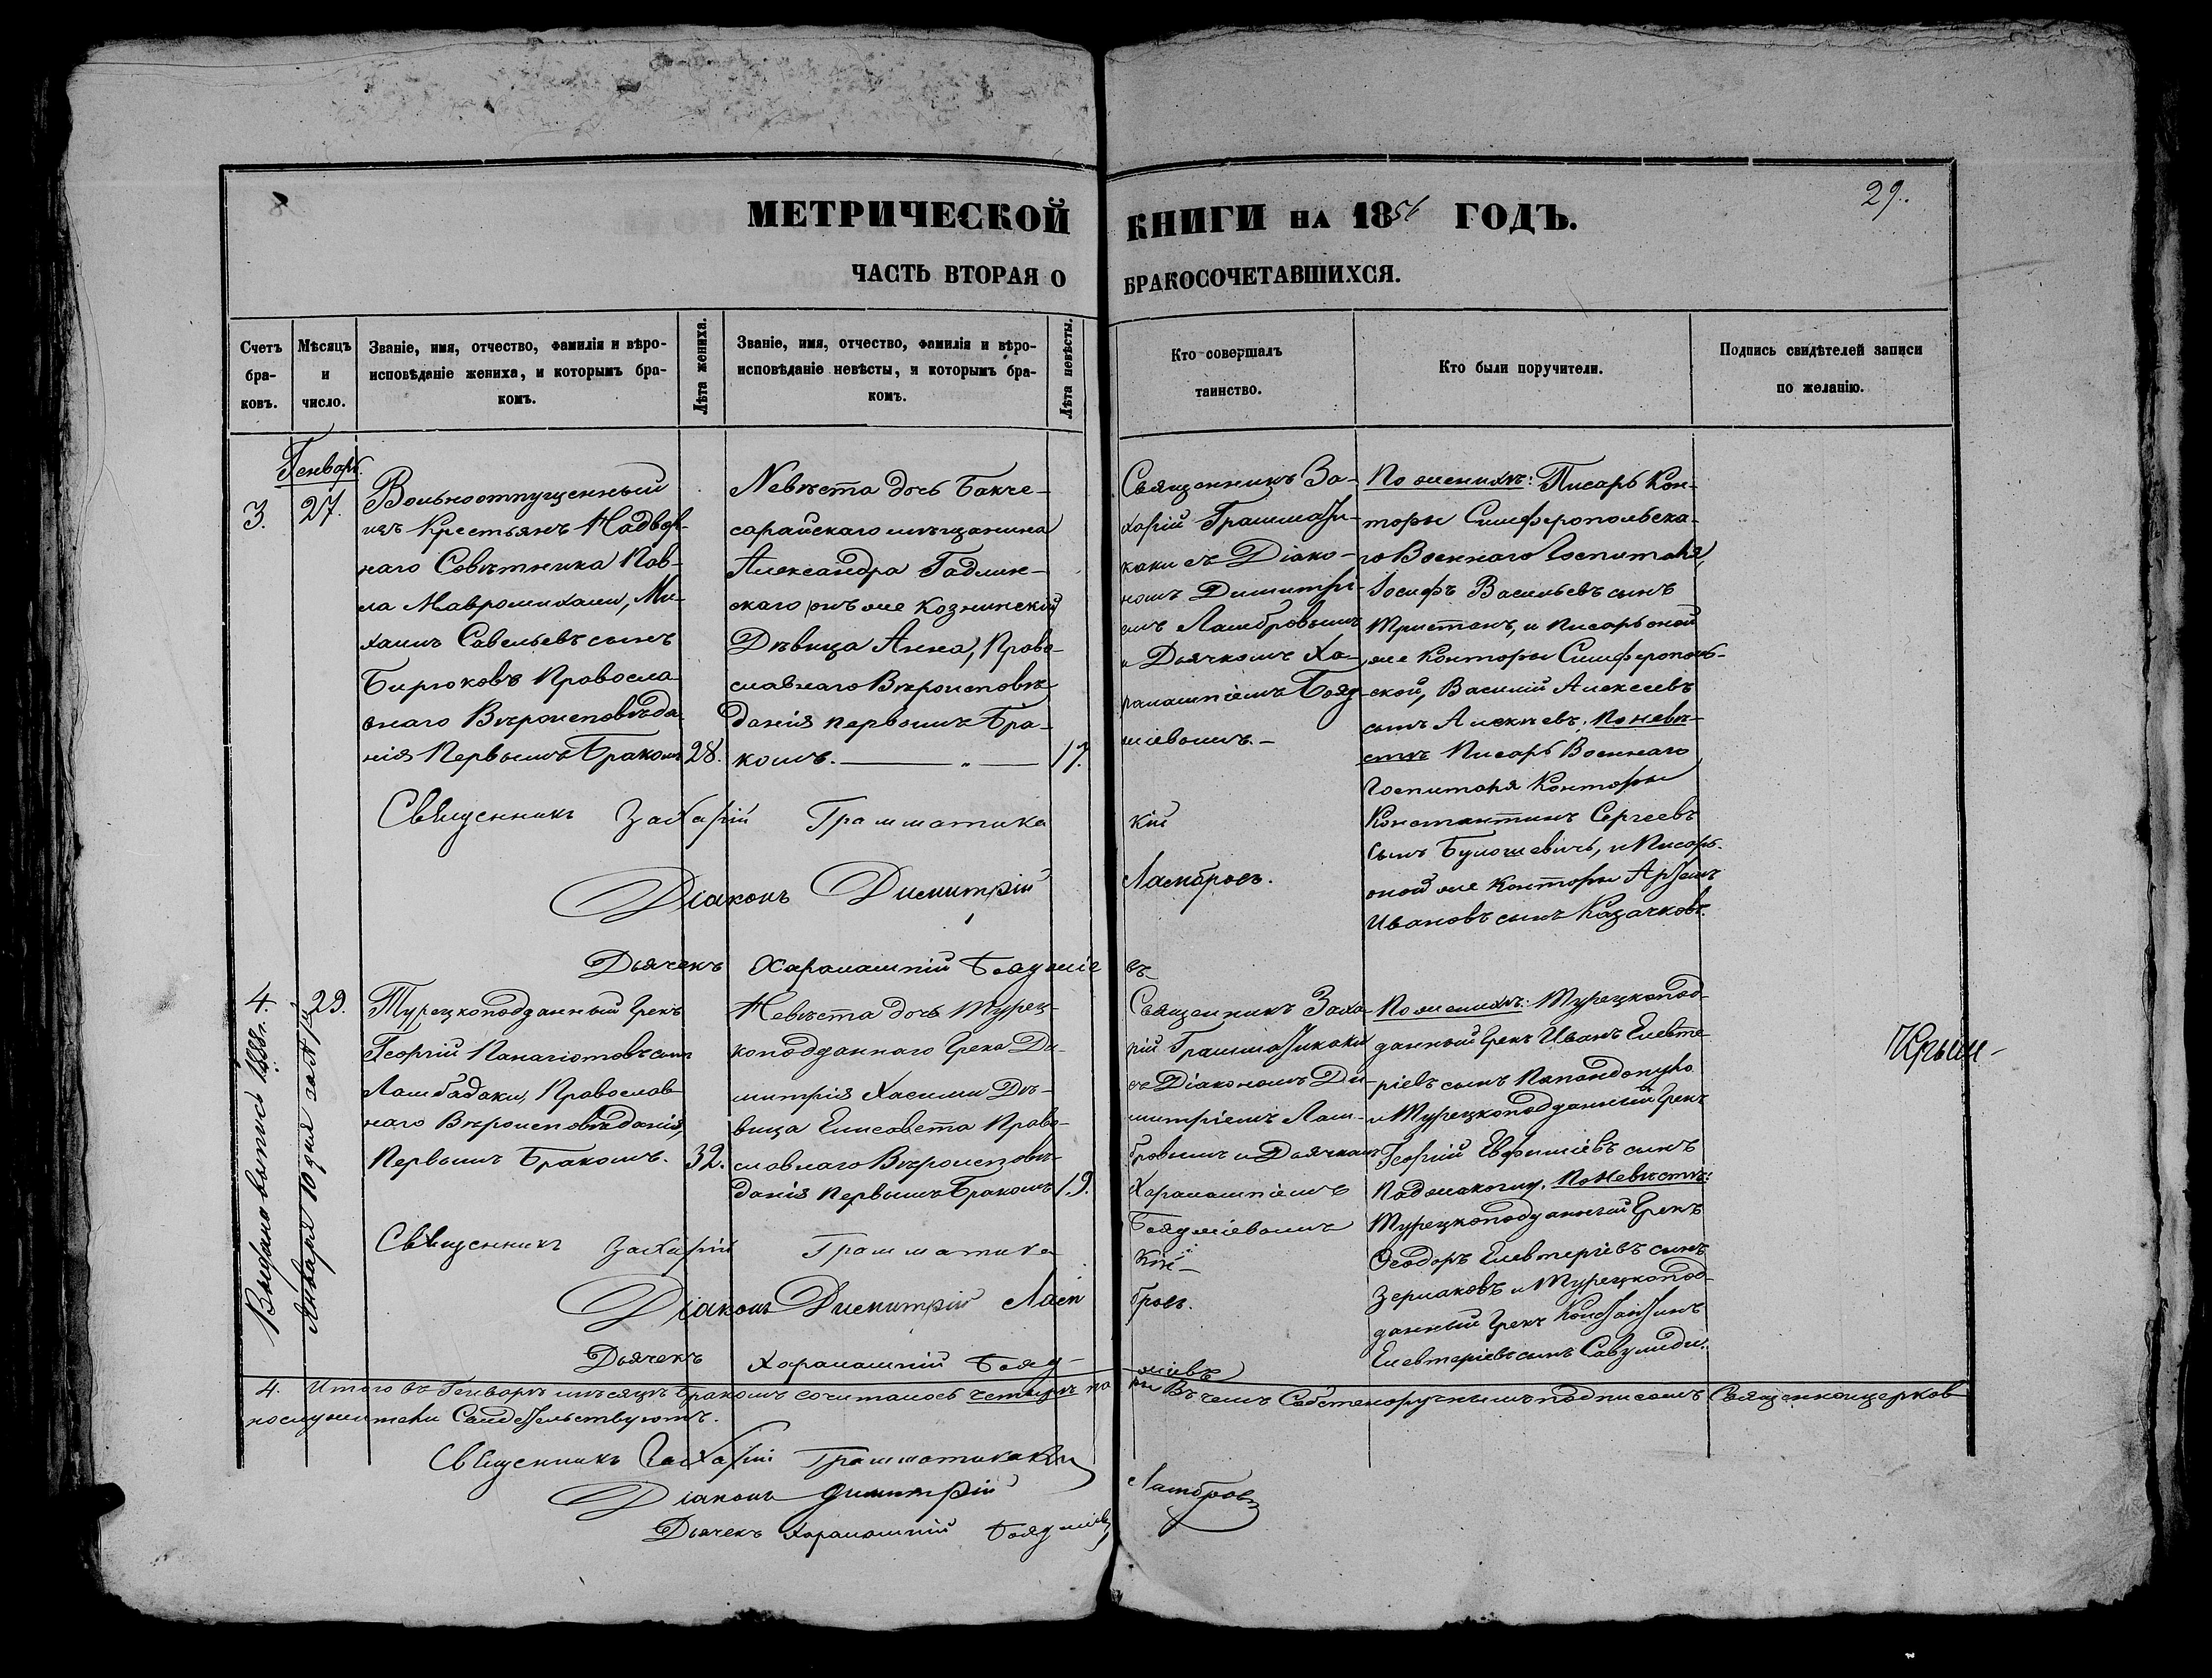 29.
МЕТРИЧЕСКОЙ КНИГИ НА 1856 ГОДЪ.
ЧАСТЬ ВТОРАЯ О БРАКОСОЧЕТАВШИХСЯ.
Счетъ бра-ковъ.
Мѣсяцъ и число.
Званіе, имя, отчество, фамилія и вѣро-
исповѣданіе жениха, и которымъ бра-
комъ.
Лѣта жениха.
Званіе, имя, отчество, фамилія и вѣро-
исповѣданіе невѣсты, и которымъ бра-
комъ.
Лѣта невѣсты.
Кто совершалъ
таинство.
Кто были поручители.
Подпись свидѣтелей записи
по желанію.
Генварь.
3.
27.
Вольноотпущенный
изъ Крестьянъ Надвор-
наго Совѣтника Пав-
ла Мавромихали, Ми-
хаилъ Савельевъ сынъ
Бирюковъ Правосла
внаго Вѣроисповѣда
нія Первымъ Бракомъ
28.
Невѣста дочь Бакче-
сарайскаго мѣщанина
Александра Гадлин-
скаго онъ же Козминскій
Дѣвица Анна, Право-
славнаго Вѣроисповѣ
данія первымъ Бра-
комъ.
17.
Священникъ За-
харій Граммати-
каки съ Діако-
номъ Димитрі-
емъ Ламбровымъ
и Дьячкомъ Ха-
рлампіемъ Бояд
жіевымъ.
По женихѣ: Писарь Кон-
торы Симферопольска-
го Военнаго Госпиталя,
Іосифъ Васильевъ сынъ
Тристанъ, и писарь оной
же Конторы Симферополь-
ской, Василій Алексеевъ
сынъ Алексѣевъ. По невѣ-
стѣ Писарь Военнаго
Госпиталя Конторы
Константинъ Сергеевъ
сынъ Булошевичь, и Писарь
оной же Конторы Артемъ
Ивановъ сынъ Казачковъ.
Священникъ Захарій Грамматикакій
Діаконъ Димитрій Ламбровъ.
Дьячекъ Харалампій Бояджіевъ
4.
29.
Турецкоподданный Грекъ
Георгій Панагіотовъ сынъ
Ламбадаки, Православ
наго Вѣроисповѣданія,
Первымъ Бракомъ.
32.
Невѣста дочь Турец-
коподданнаго Грека Ди-
митрія Хасими Дѣ-
вица Елисавета Право-
славнаго Вѣроисповѣ-
данія первымъ Бракомъ
19.
Священникъ Заха-
рій Грамматикаки
съ Діакономъ Ди-
митріемъ Лам-
бровымъ и Дьячкомъ
Харалампіемъ
Бояджіевымъ
По женихѣ: Турецкопод-
данный Грекъ Иванъ Елевте-
ріевъ сынъ Папандопуло
и Турецкоподданный Грекъ
Георгій Евфиміевъ сынъ
По Невѣстѣ:
Турецкоподданный Грекъ
Ѳеодоръ Елевтеріевъ сынъ
Зермаковъ и Турецкопод-
данный Грекъ Константинъ
Елевтеріевъ сынъ Савулиди.
Священникъ Захарій Грамматикакій
Діаконъ Димитрій Ламбровъ.
Дьячекъ Харалампій Бояджіевъ
Выдана выпись 1888 г.
Января 10 дня за №
4. Итого въ Генварѣ мѣсяцѣ Бракомъ сочиталось четыре па ры Въ чемъ Собственоручнымъ подписомъ Священноцерков
нослужители Свидетельствуютъ.
Священникъ Захарій Грамматикаки
Діаконъ Димитрій Ламбровъ
Дьячекъ Харалампій Бояджіевъ